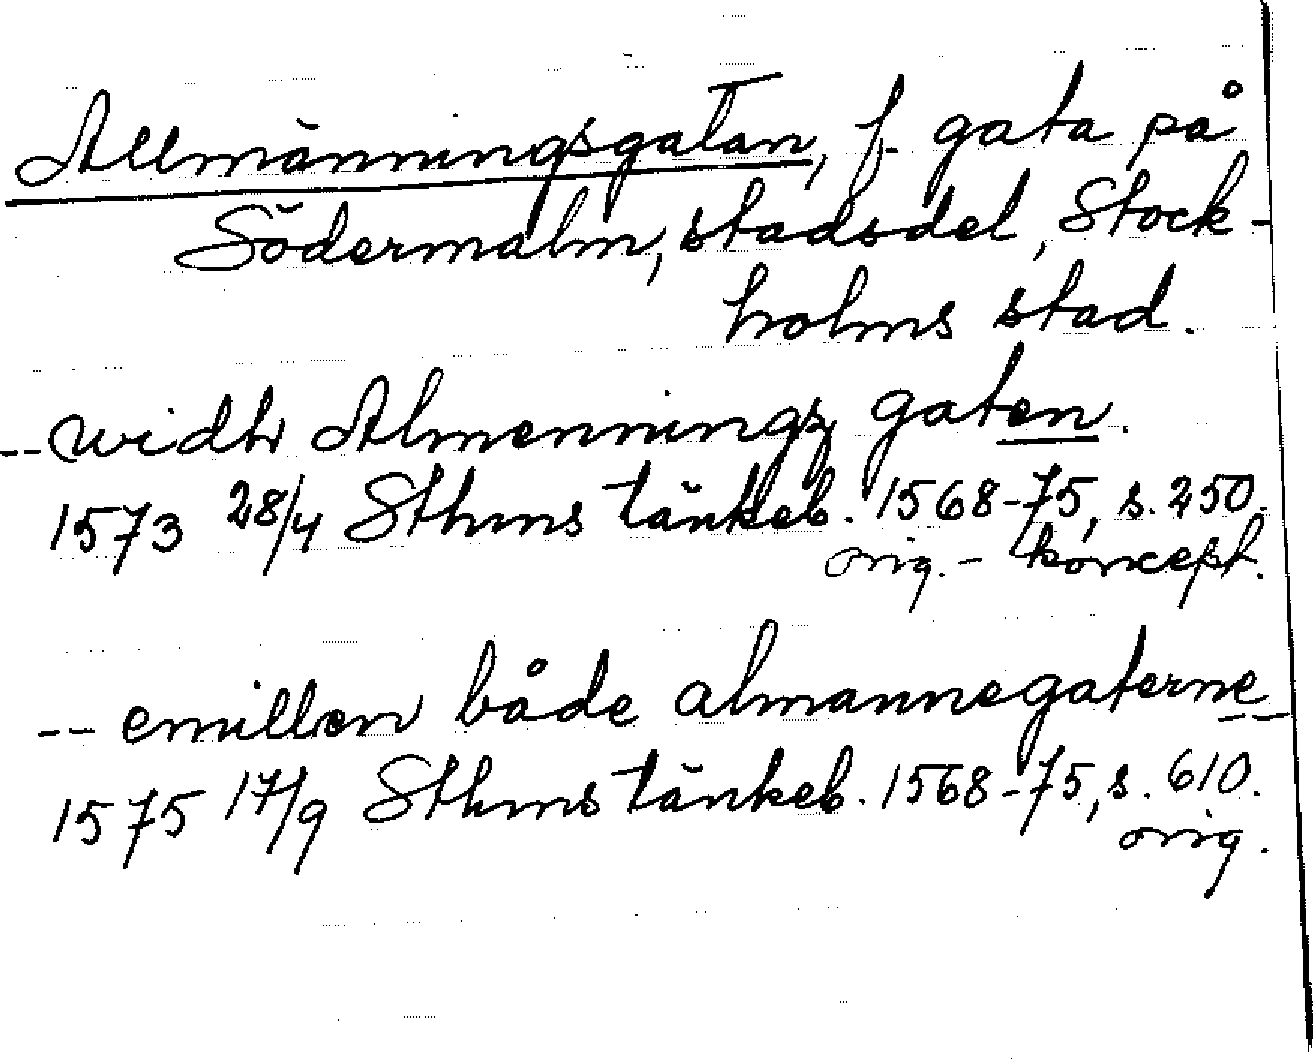 Allmänningsgatan, f. gata på
Södermalm, stadsdel, Stock-
holms stad.
-- widh Almenningz gaten.
1573 28/4 Sthms tänkeb. 1568-75, s. 250.
orig. - koncept.
-- emillan både almannegaterne --
1575 17/9 Sthms tänkeb. 1568-75, s. 610.
orig.